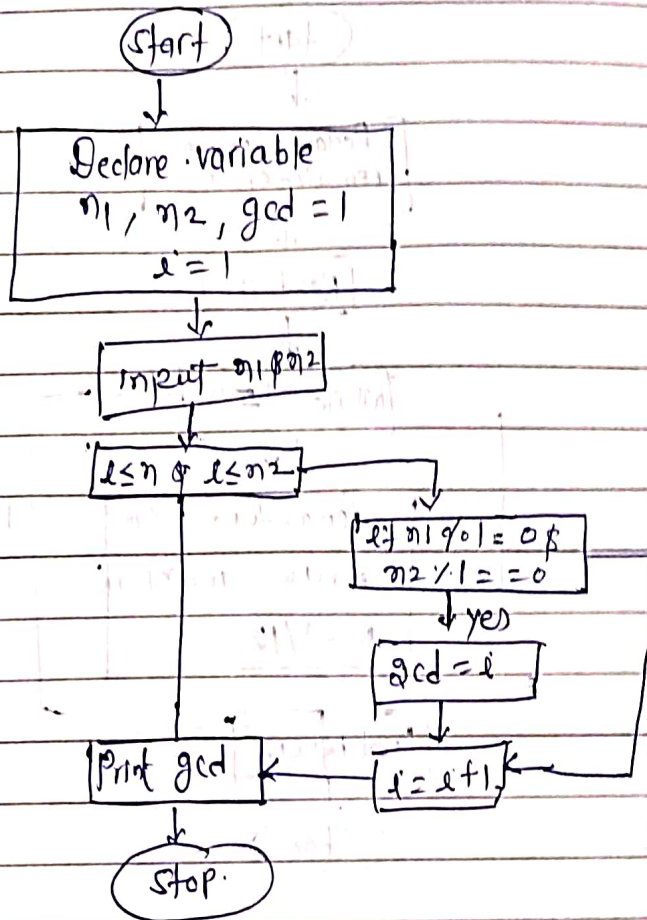 Start
Declare variable
n1, n2, gcd = 1
i = 1
input n1 & n2
i≤n & i≤n2
if n1%i = 0 &
n2%i==0
yes
gcd = i
i = i+1
Print gcd
Stop.